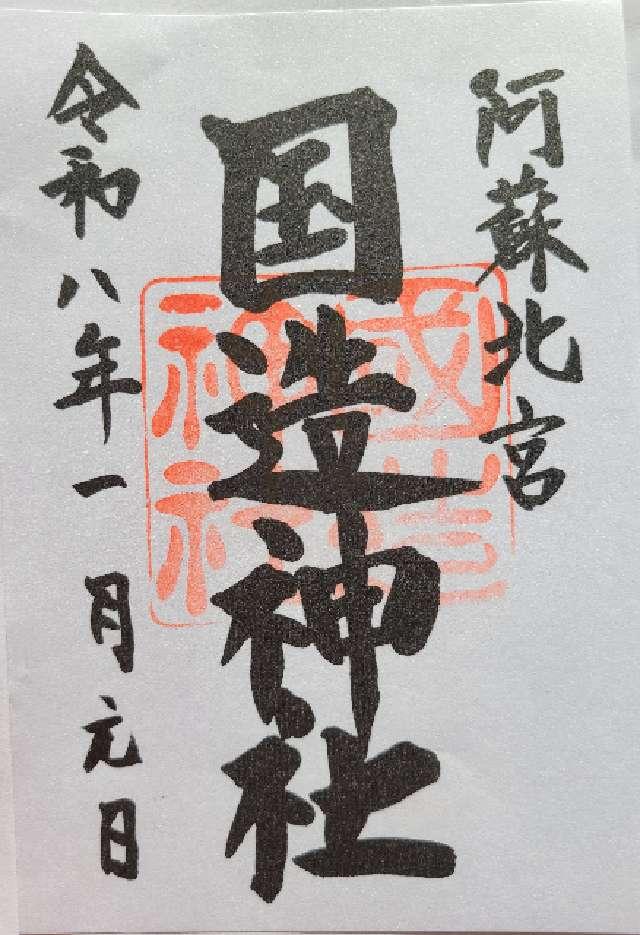 阿蘇北宮
国造神社
令和八年一月元日
國造
神社